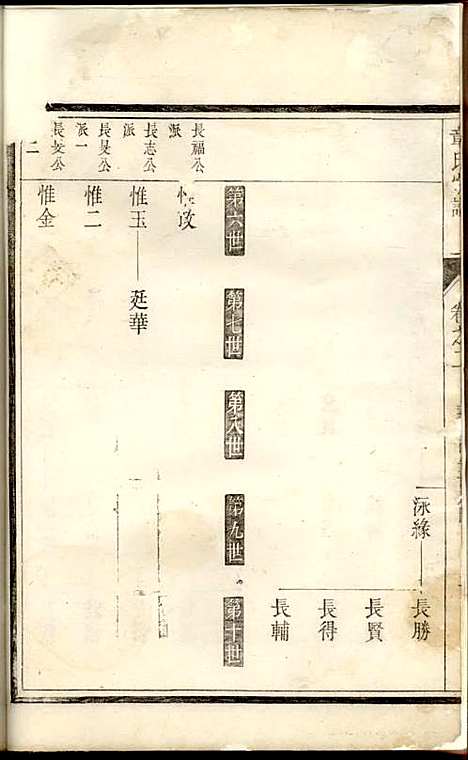 卷之二
泳緣
長勝
長賢
長得
長輔
第六世
第七世
第八世
第九世
第十世
長福公
派
長志公
派
長旻公
派一
長旻公
二
惟政
惟玉
廷華
惟二
惟金